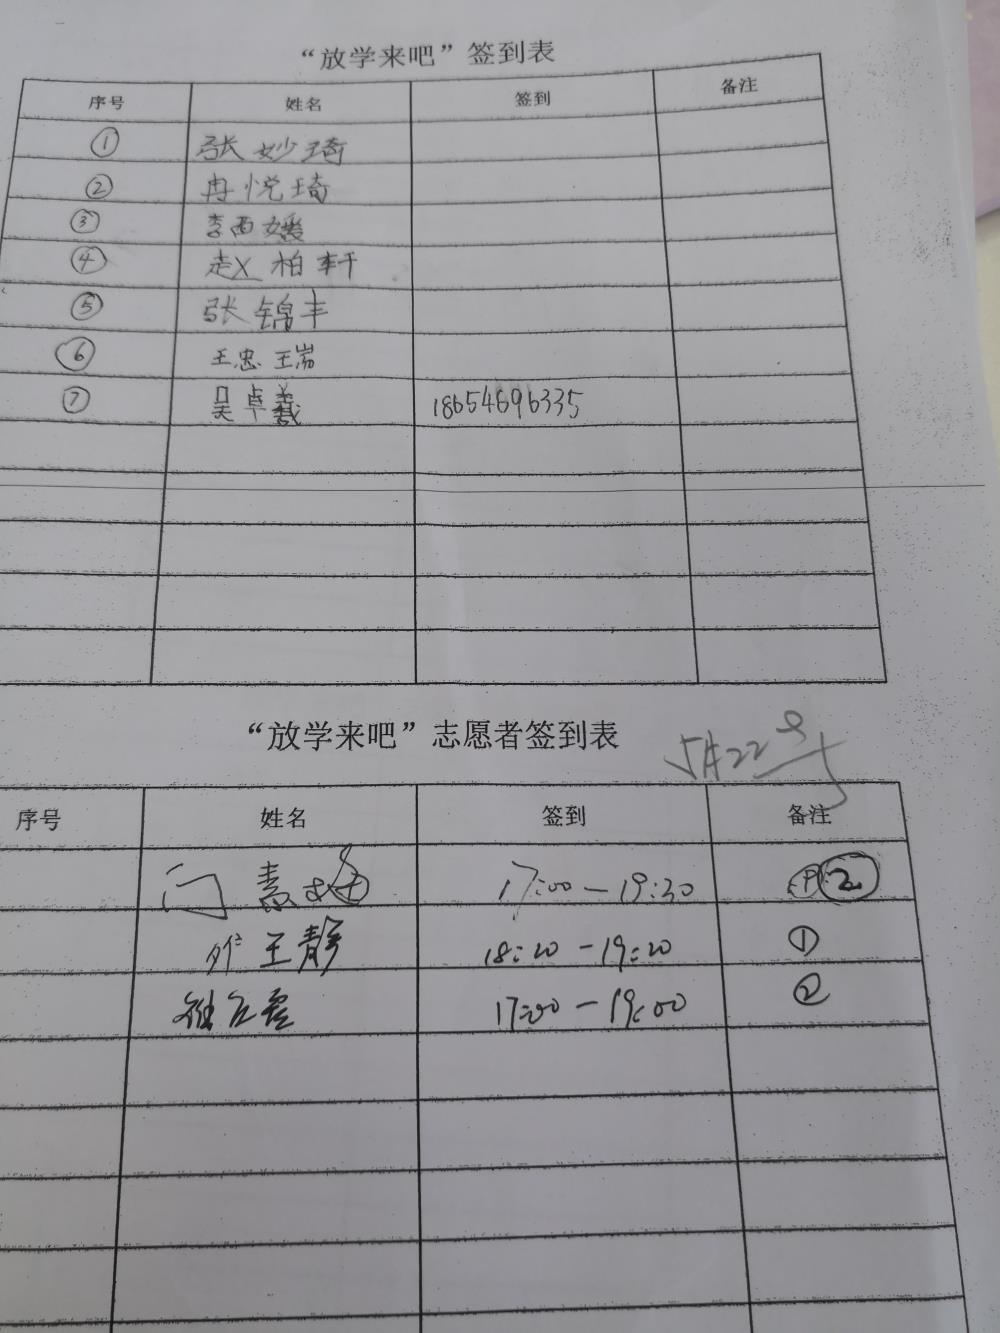 “放学来吧”签到表
序号 姓名 签到 备注
① 张妙琦
② 冉悦琦
③ 李西媛
④ 赵柏轩
⑤ 张锦丰
⑥ 王忠瑞
⑦ 吴卓羲 18654696335
“放学来吧”志愿者签到表 5月22号
序号 姓名 签到 备注
门 17:00-19:30 ②
王静 18:20-19:20 ①
17:00-19:00 ②